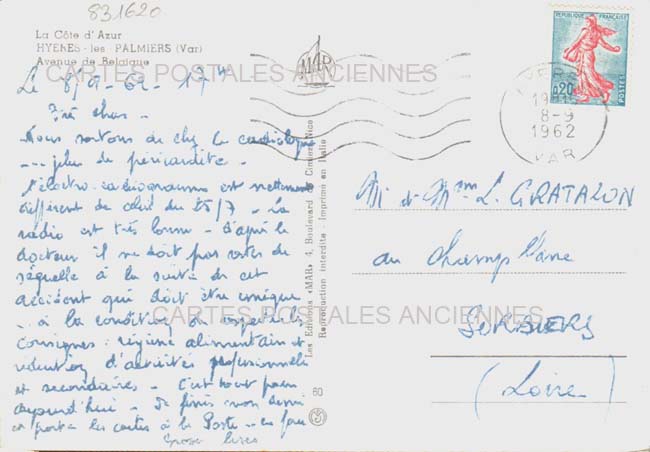 831620
La Côte d'Azur
HYERES - les - PALMIERS (Var)
Avenue de Belgique
CARTES POSTALES ANCIENNES
MAR
REPUBLIQUE FRANÇAISE
0,20
POSTES
HYERES
19H
8-9
1962
VAR
Le 8/9-62 - 17h
Très chers -
Nous sortons de chez le cardiologue
--- plus de péricardite -
L'électro-cardiogramme est nettement
différent de celui du 25/7 - La
radio est très bonne - d'après le
docteur il ne doit pas rester de
séquelle à la suite de cet
accident qui doit être unique
... à la condition de respecter les
consignes : régime alimentaire et
réduction d'activités professionnelles
et secondaires - C'est tout pour
aujourd'hui - Je finis mon devoir
et porte les cartes à la Poste - en
Grosses bises
Les Editions «MAR» 4, Boulevard de Cimiez-Nice
Reproduction interdite - imprimé en Italie
60
M. et Mme L. GRATALON
au Champ
SORBIERS
(Loire)
CARTES POSTALES ANCIENNES